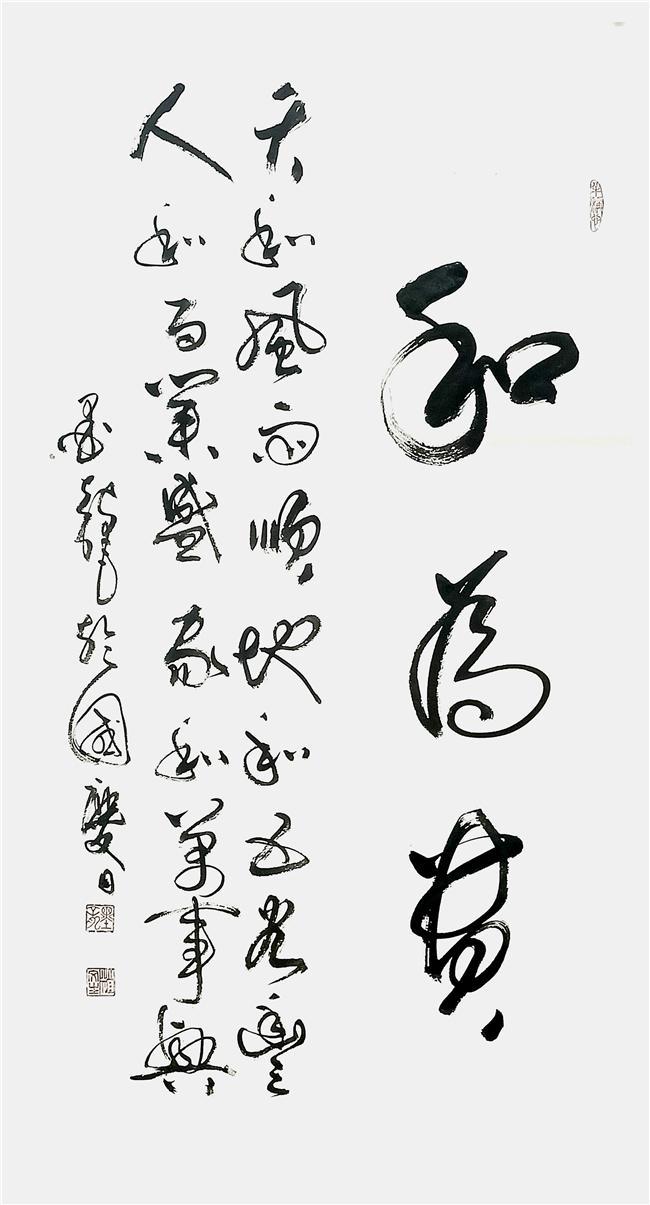 和為貴
天和風雨順地和五谷豐
人和百業盛家和萬事興
墨龍於國慶日